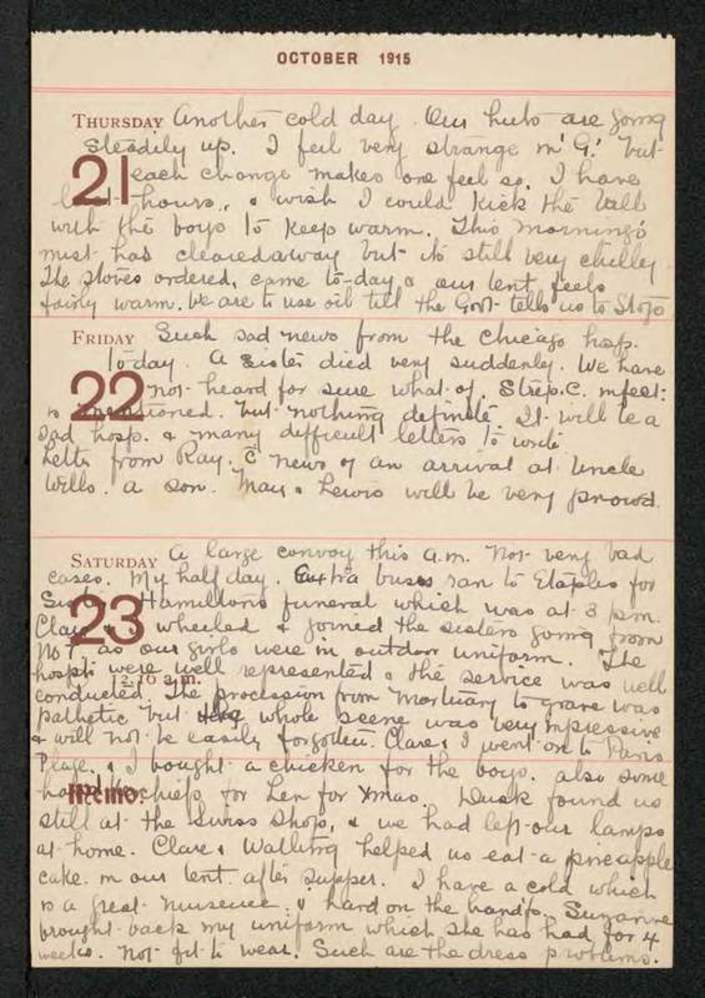 OCTOBER 1915
THURSDAY Another cold day. Our huts are going
steadily up. I feel very strange in 'G.' but
21 each change makes one feel so. I have
hours, & wish I could kick the ball
with the boys to keep warm. This morning's
mist has cleared away but its still very chilley
The stoves ordered, came to-day & our tent feels
fairly warm. We are to use oil till the Govt tells us to Stop
FRIDAY Such sad news from the Chicago hosp.
to day. A Sister died very suddenly. We have
22 not heard for sure what of. Strep.C. infect:
is mentioned. but nothing definite. It will be a
sad hosp. & many difficult letters to write
Letter from Ray. c̄ news of an arrival at Uncle
Wells. a son. May & Lewis will be very proud.
SATURDAY A large convoy this a.m. Not very bad
cases. My half day. Extra buses ran to Etaples for
Sister Hamilton's funeral which was at 3 p.m.
23 Clare & I wheeled & joined the sisters going from
No 7 as our girls were in outdoor uniform. The
hospts were well represented & the service was well
12.16 a.m.
conducted. The procession from Mortuary to grave was
pathetic but the whole scene was very impressive
& will not be easily forgotten. Clare & I went on to Paris
Plage. & I bought a chicken for the boys. also some
Memo. handkerchiefs for Len for Xmas. Dusk found us
still at the Swiss Shop, & we had left our lamps
at home. Clare & Watling helped us eat a pineapple
cake in our tent after supper. I have a cold which
is a great nuisence & hard on the handfs. Suzanne
brought back my uniform which she has had for 4
weeks. Not fit to wear. Such are the dress problems.